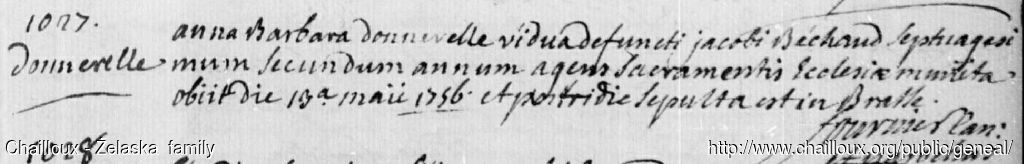 1027.
donnerelle
anna Barbara donnerelle vidua defuncti jacobi Bechaud septuagesi
mum secundum annum agens sacramentis Ecclesiæ munita
obiit die 13ᵃ maii 1756 et postridie sepulta est in Bralle.
fournier Can:
1028
Chailloux - Zelaska family
http://www.chailloux.org/public/geneal/